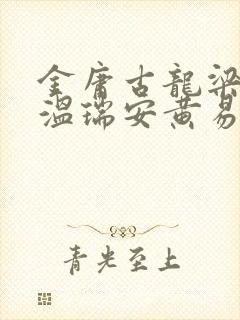 金庸古龍梁
温瑞安黄易
青光至上